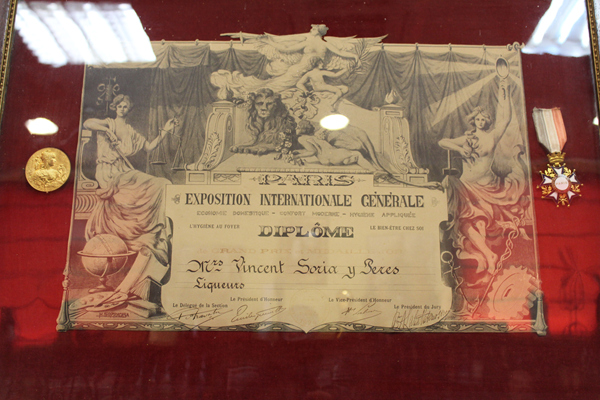 PARIS
EXPOSITION INTERNATIONALE GÉNÉRALE
ECONOMIE DOMESTIQUE - CONFORT MODERNE - HYGIENE APPLIQUÉE
L'HYGIÈNE AU FOYER
LE BIEN-ÊTRE CHEZ SOI
DIPLÔME
Mrs Vincent Soria y Peres
Liqueurs
Le Président d'Honneur
Le Vice-Président d'Honneur
Le Délégué de la Section
Le Président du Jury